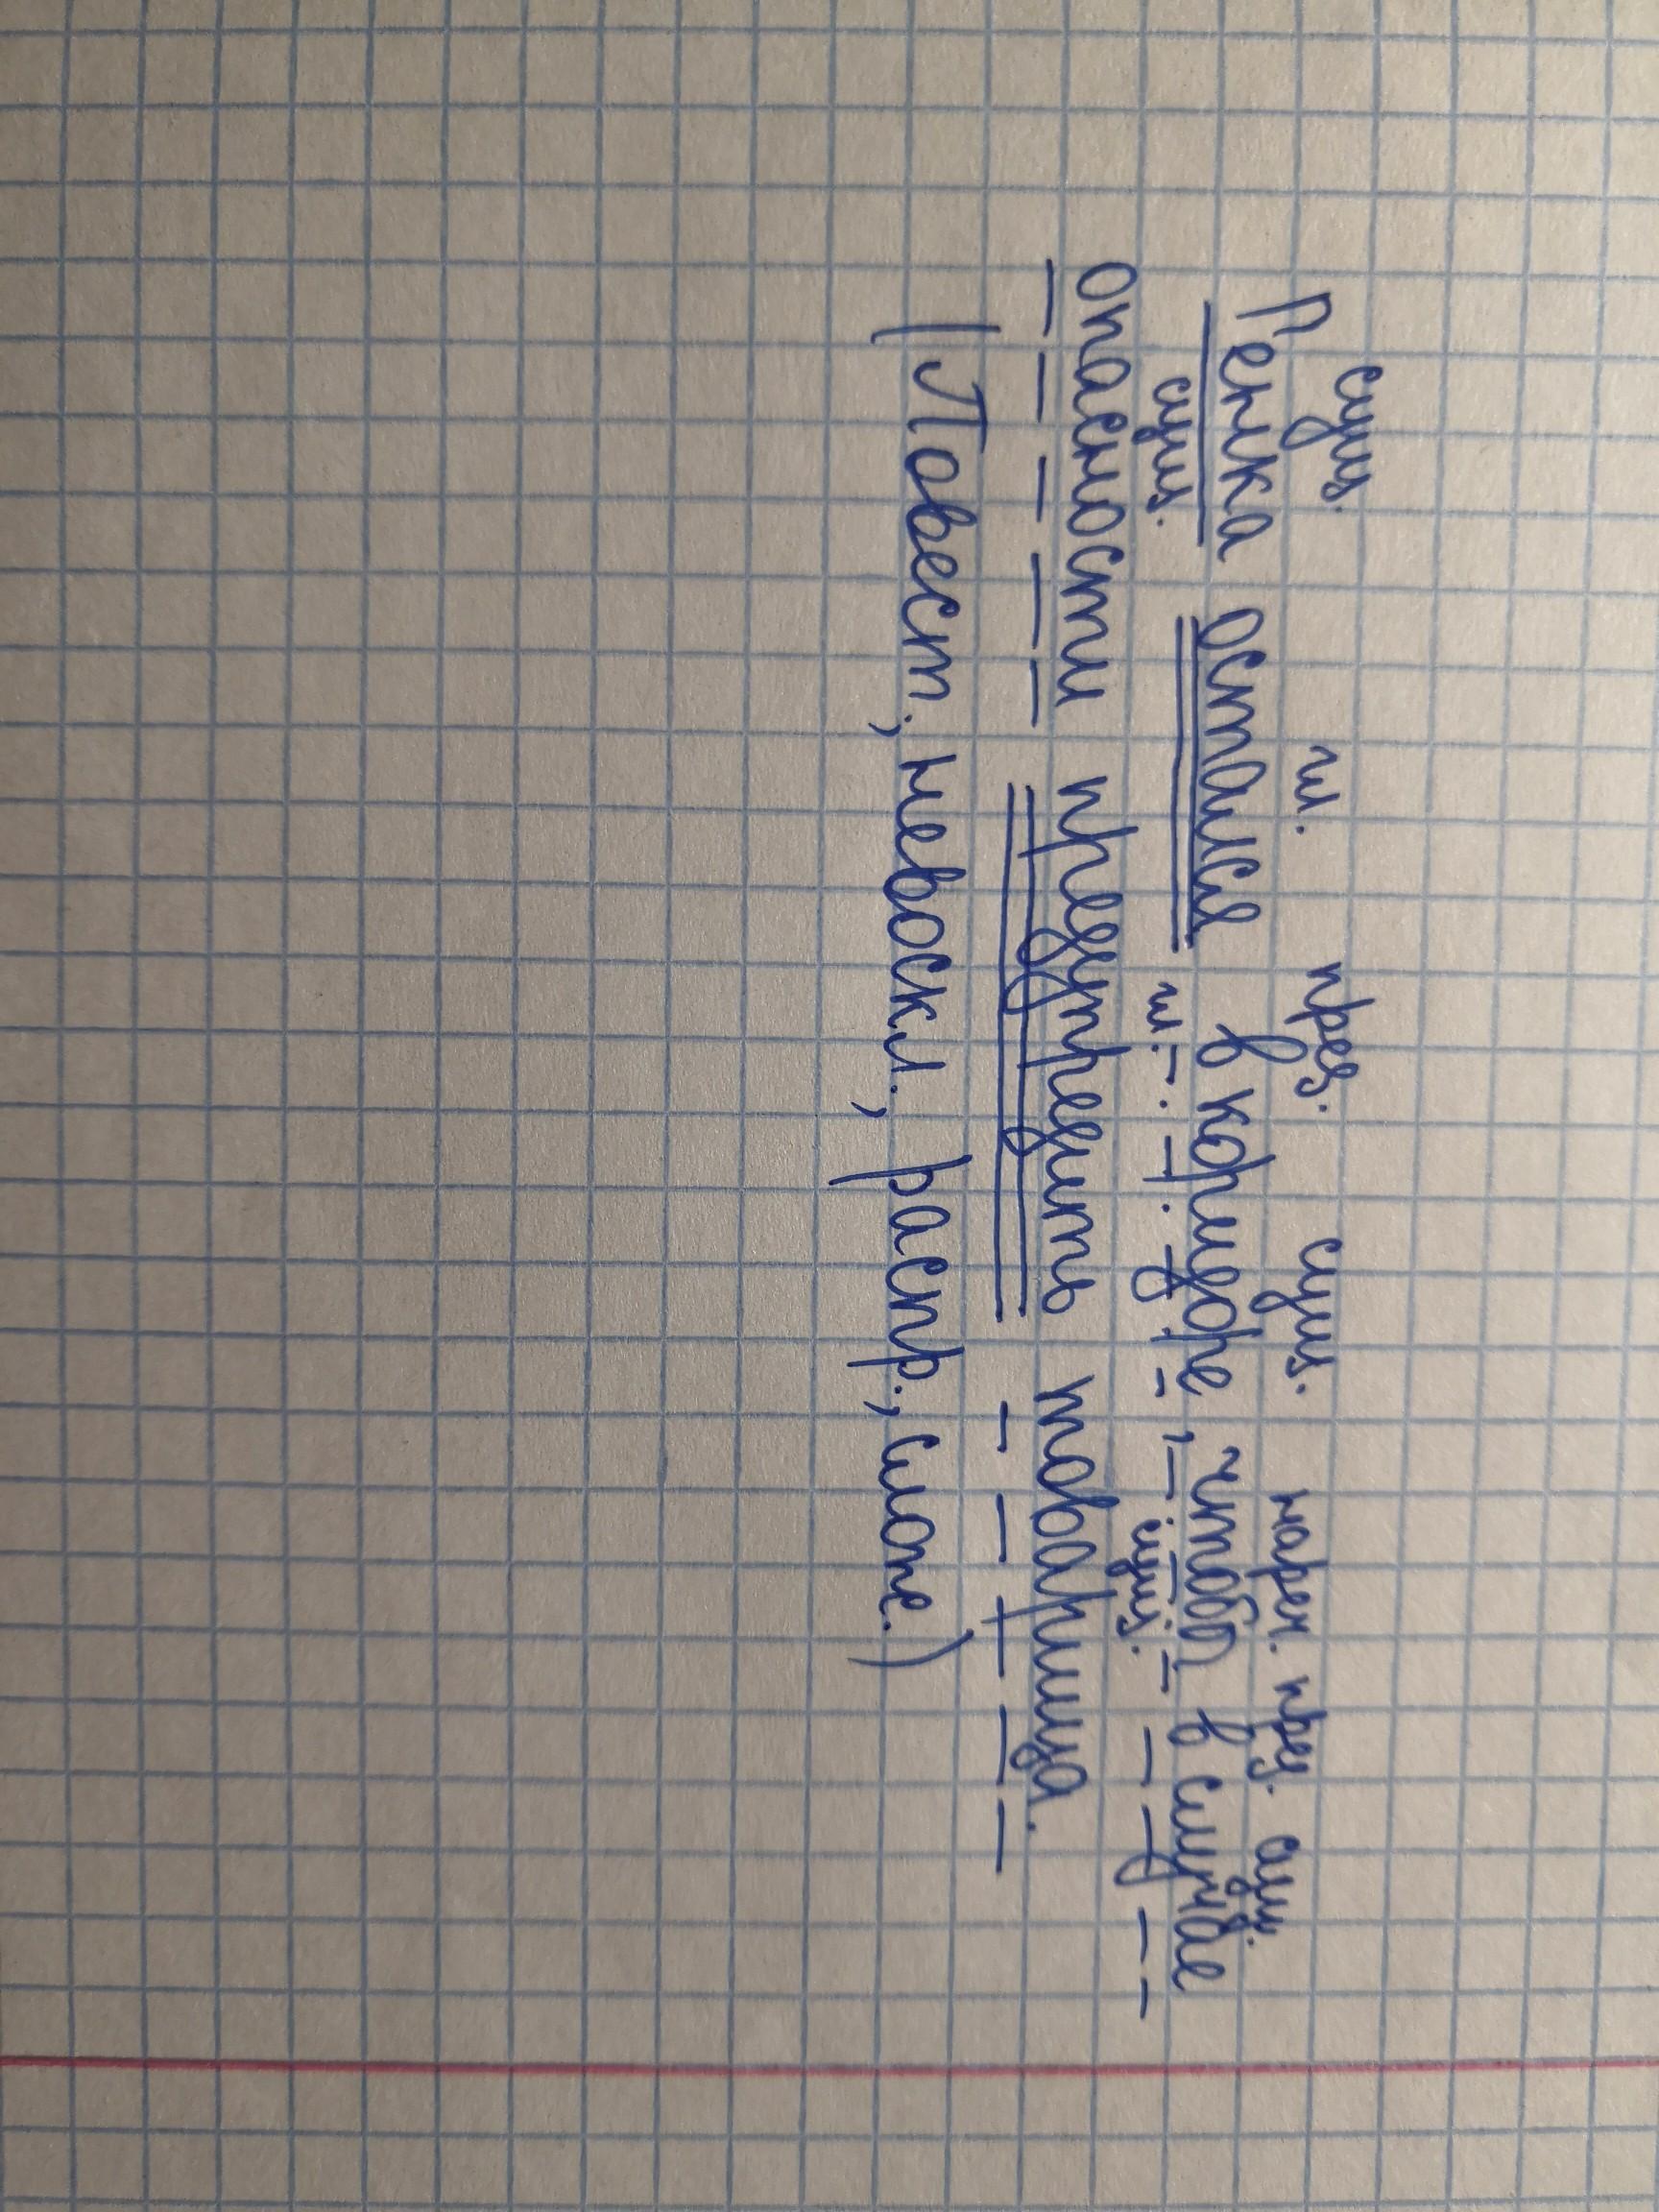 сущ. гл. пред. сущ. нареч. пред. сущ.
Генка остался в коридоре, чтоб в случае
сущ. гл. сущ.
опасности предупредить товарища.
(Повест., невоскл., распр., слож.)